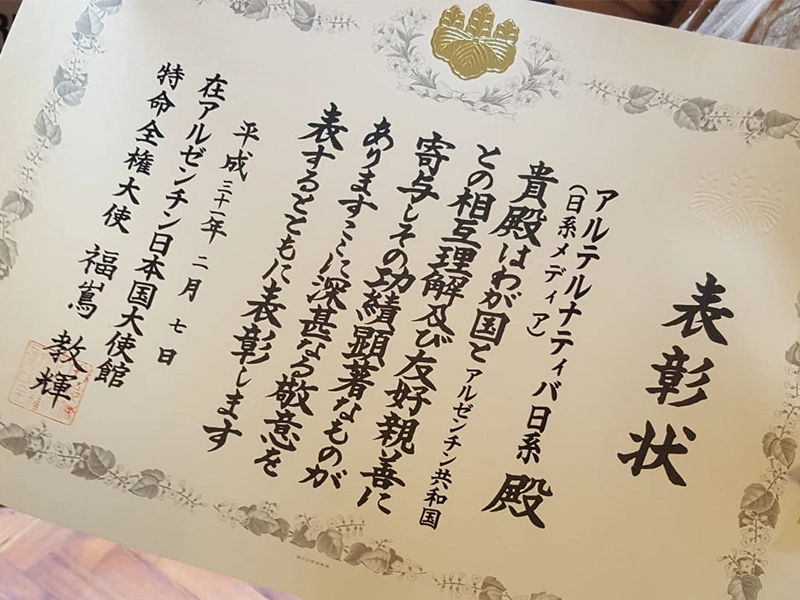 表彰状
アルテルナティバ日系 殿
(日系メディア)
貴殿はわが国とアルゼンチン共和国
との相互理解及び友好親善に
寄与しその功績顕著なものが
ありますここに深甚なる敬意を
表するとともに表彰します
平成三十一年二月七日
在アルゼンチン日本国大使館
特命全権大使 福嶌教輝